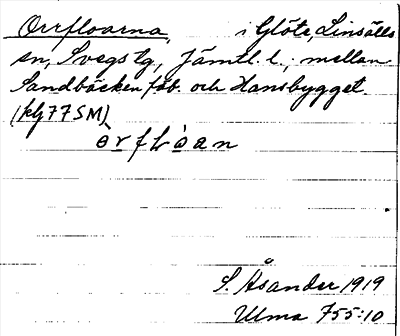 Orrfloarna, i Glöte, Linsälls
sn, Svegs tg, Jämtl. l.; mellan
Sandbäcken fäb. och Hansbygget.
(klg 77 SM)
ò̀rfLòan
S. Åsander 1919
Ulma 755:10